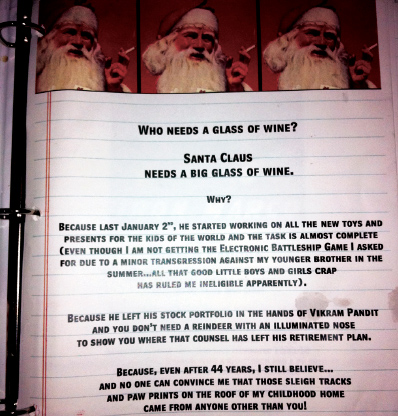 Who needs a glass of wine?
Santa Claus
needs a big glass of wine.
Why?
Because last January 2nd, he started working on all the new toys and
presents for the kids of the world and the task is almost complete
(even though I am not getting the Electronic Battleship Game I asked
for due to a minor transgression against my younger brother in the
summer...all that good little boys and girls crap
has ruled me ineligible apparently).
Because he left his stock portfolio in the hands of Vikram Pandit
and you don't need a reindeer with an illuminated nose
to show you where that counsel has left his retirement plan.
Because, even after 44 years, I still believe...
and no one can convince me that those sleigh tracks
and paw prints on the roof of my childhood home
came from anyone other than you!